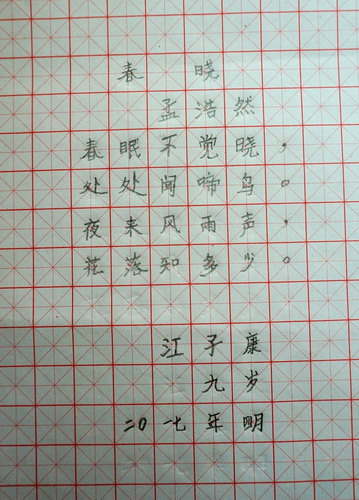 春晓
孟浩然
春眠不觉晓，
处处闻啼鸟。
夜来风雨声，
花落知多少。
江子康
九岁
二〇一七年四月